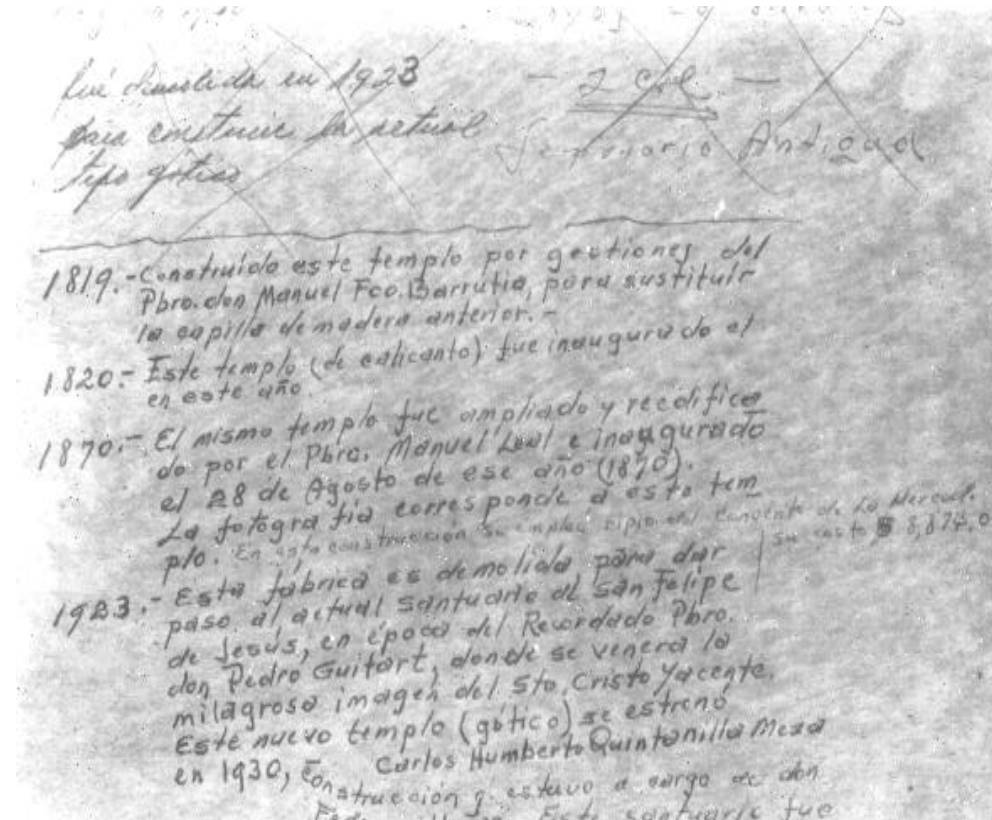 fué demolida en 1923
para construir la actual
tipo gótico
- 2 col -
Antigua
1819.- Construido este templo por gestiones del
Pbro. don Manuel Fco. Barrutia, para sustituir
la capilla de madera anterior.-
1820.- Este templo (de calicanto) fue inaugurado el
en este año.
1870.- El mismo templo fue ampliado y reedifica
do por el Pbro. Manuel Leal e inaugurado
el 28 de Agosto de ese año (1870).
La fotografía corresponde a este tem
plo. En esta construcción se empleó ripio del Convento de La Merced.
su costo $ 8,874.0
1923.- Esta fábrica es demolida para dar
paso al actual Santuario de San Felipe
de Jesús, en época del Recordado Pbro.
don Pedro Guitart, donde se venera la
milagrosa imagen del Sto. Cristo Yacente.
Este nuevo templo (gótico) se estrenó
en 1930, Carlos Humberto Quintanilla Meza
Construcción q. estuvo a cargo de don
Este santuario fue